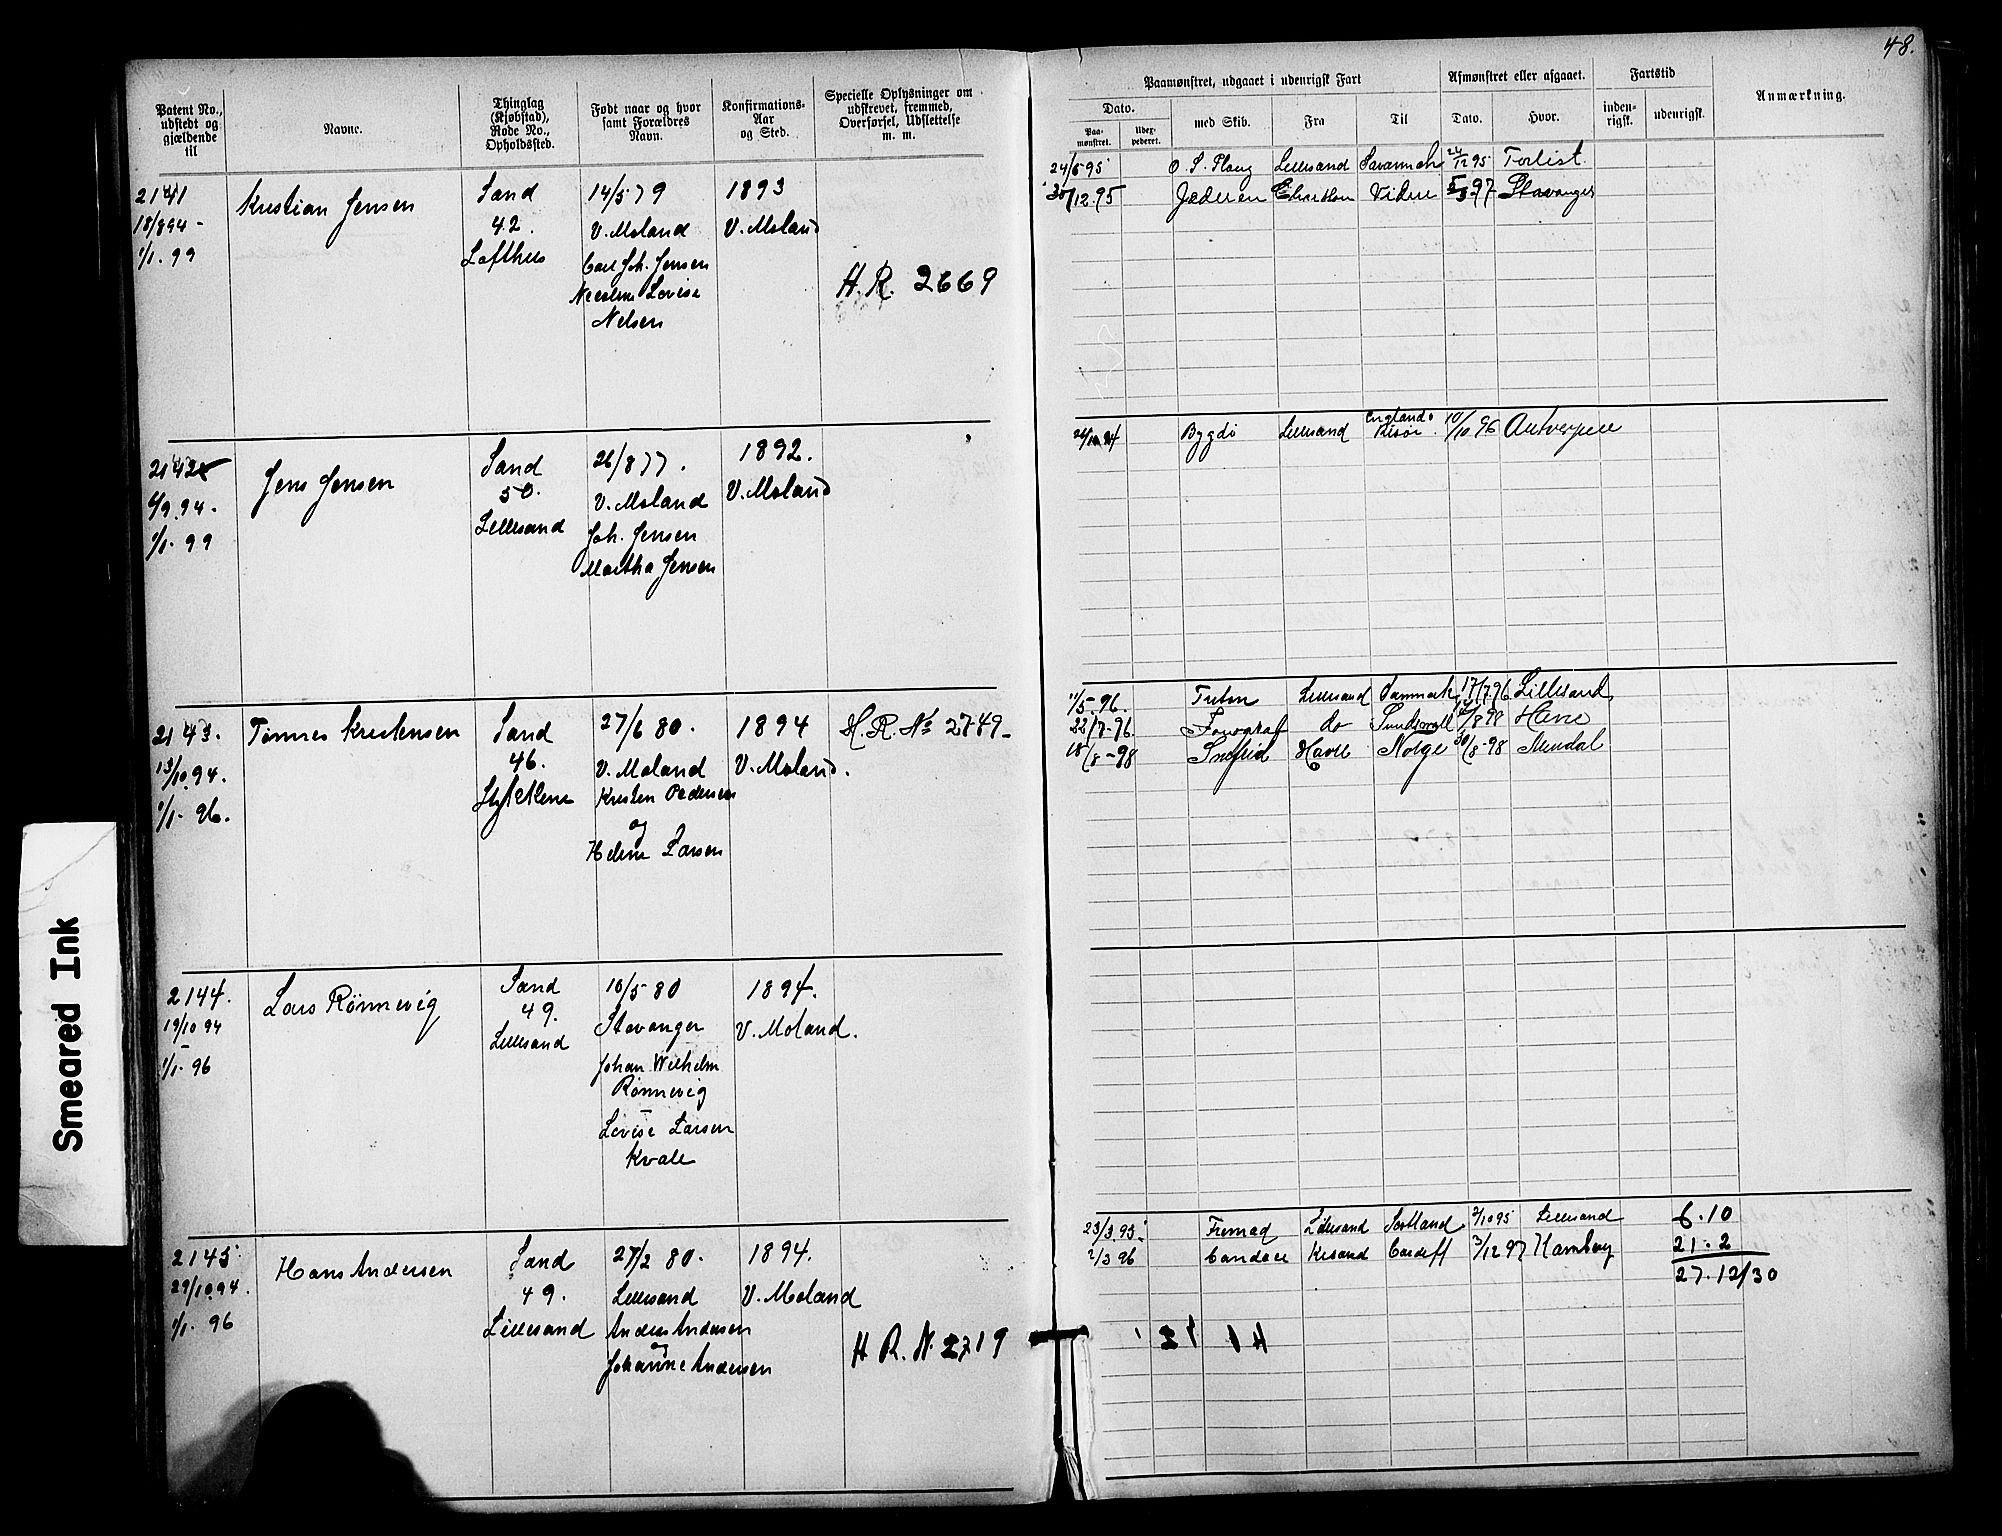 48.
Patent No., udstedt og gjældende til
Navne.
Thinglag (Kjøbstad), Rode No., Opholdssted.
Født naar og hvor samt Forældres Navn.
Konfirmations-Aar og Sted.
Specielle Oplysninger om udskrevet, fremmed, Overførsel, Udslettelse m. m.
Paamønstret, udgaaet i udenrigsk Fart
Dato.
Paa-mønstret.
Udex-pederet.
med Skib.
Fra
Til
Afmønstret eller afgaaet.
Dato.
Hvor.
Fartstid
inden-rigsk.
udenrigsk.
Anmærkning.
2141
18/8 94 -
1/1. 99
Kristian Jensen
Sand
42.
Lofthus
14/5 79
V. Moland
Carl Joh. Jensen
Lovise
Nelsen
1893
V. Moland
H. R. 2669
24/6 95 Lillesand Savannah 24/12 95 Forlist.
/12. 95 Jæderen 97 Stavanger
2142
/9. 94.
1/1. 99
Jens Jensen
Sand
50.
Lillesand
26/8 77.
V. Moland
Joh. Jensen
Martha Jensen
1892.
V. Moland
Bygdø Lillesand England Risør 10/10 96 Antverpen
2143.
13/10. 94.
1/1- 96.
Tønnes Kristensen
Sand
46.
27/6 80.
V. Moland
Kristen Pedersen
og
Helene Larsen
1894
V. Moland.
H. R. No 2749.
11/5- 96. Triton Lillesand Danmark 17/7. 96 Lillesand
22/7- 96. do Sundsvall /8 98
18/8 - 98 Snefrid Havre Norge 30/8- 98 Mendal
2144.
19/10 94
1/1- 96
Lars Rønnevig
Sand
49.
Lillesand
10/5 80
Stavanger
Johan Wilhelm
Rønnevig
Lovise Larsen
Kvale
1894.
V. Moland.
2145
29/10. 94.
1/1. 96
Hans Andersen
Sand
49.
Lillesand
27/2 80.
Lillesand
Anders Andersen
og
Johanne Andersen
1894.
V. Moland
H. R. N. 2719
23/3. 95. Fremad Lillesand Scotland 2/10 95 Lillesand 6. 10
2/3 96 Candace Krsand Cardiff 3/12 97 Hamburg 21. 2
27. 12/30
Smeared Ink